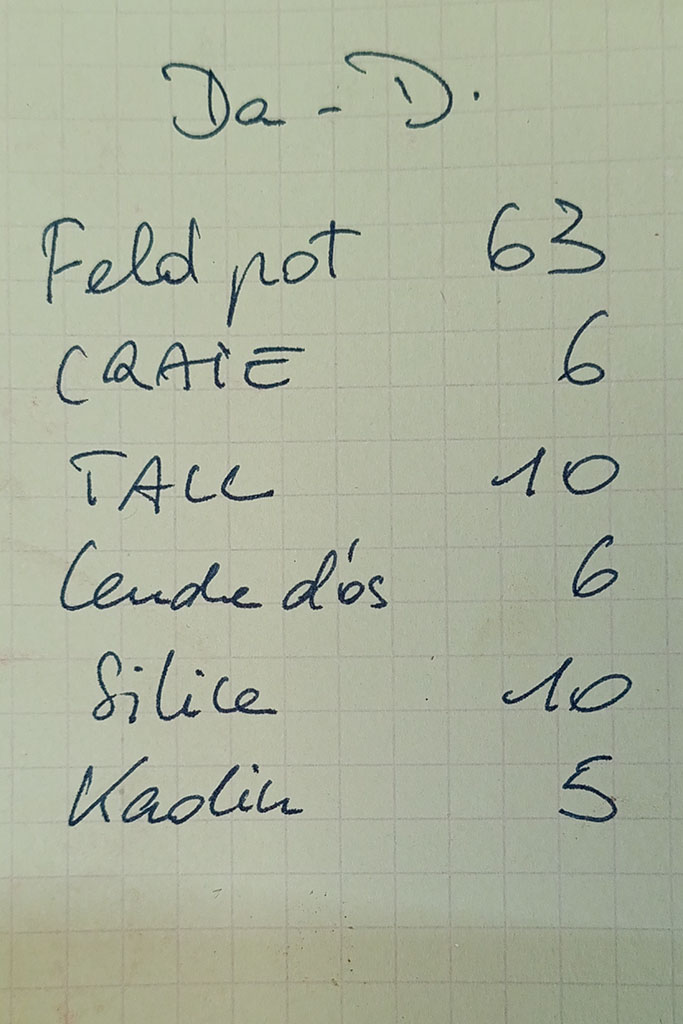 Da - D.
Feld pot 63
CRAIE 6
TALC 10
Cendre d'os 6
Silice 10
Kaolin 5